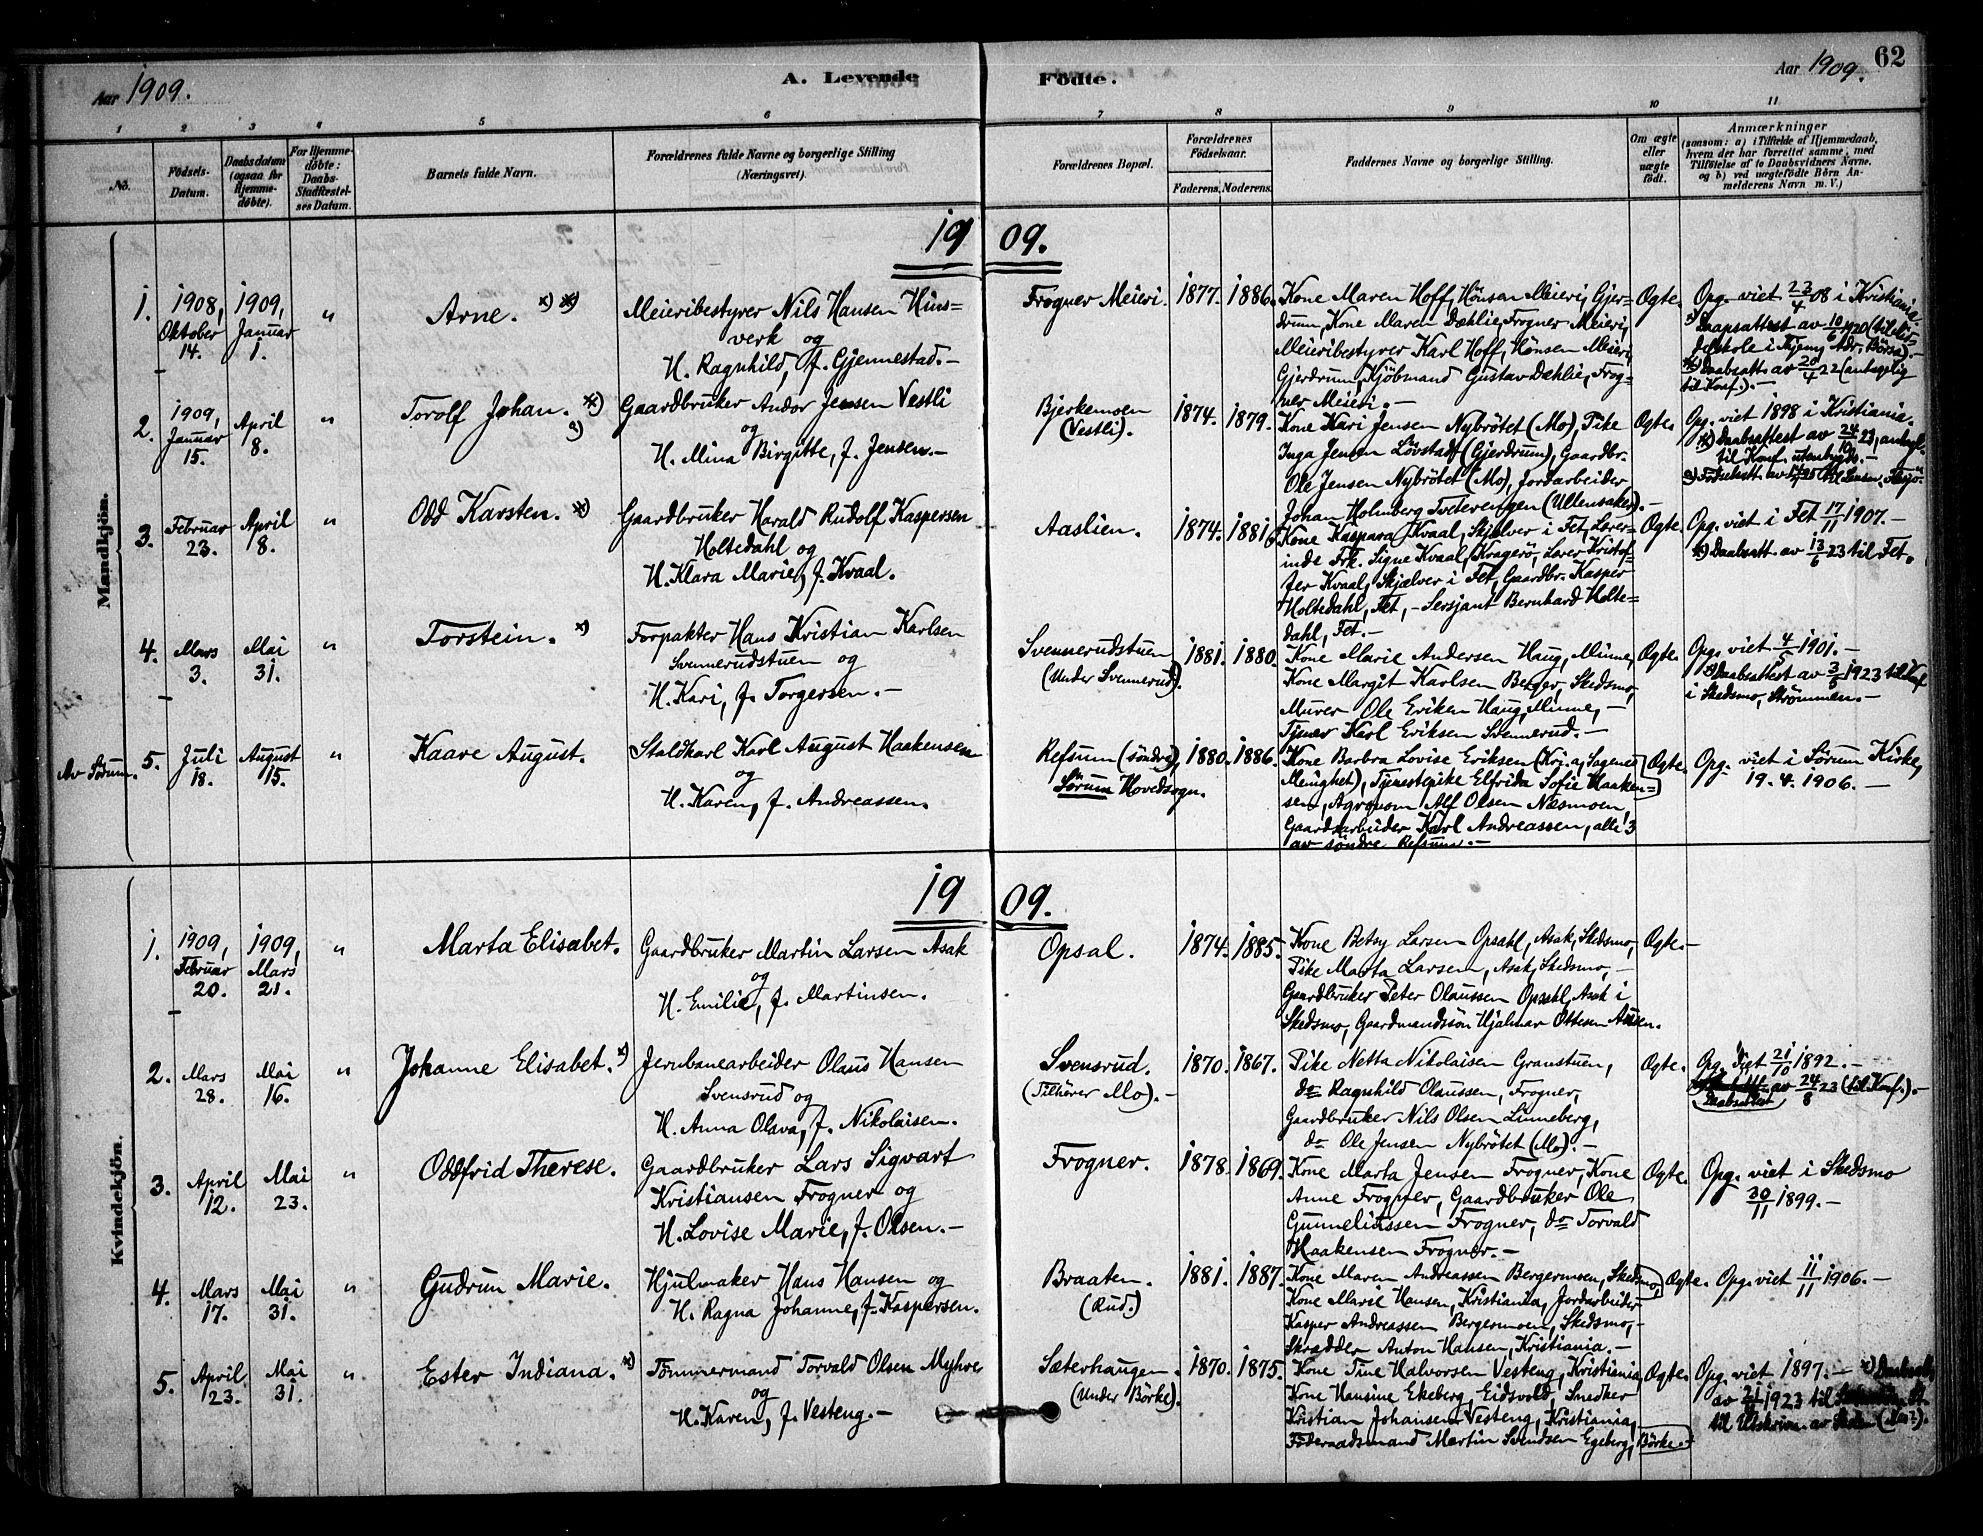 62
Aar 1909.
A. Levende Födte.
Aar 1909.
1 2 3 4 5 6 7 8 9 10 11
No.
Födsels-Datum.
Daabsdatum (ogsaa for Hjemme-döbte).
For Hjemme-döbte: Daabs-Stadfæstel-ses Datum.
Barnets fulde Navn.
Forældrenes fulde Navne og borgerlige Stilling (Næringsvei).
Forældrenes Bopæl.
Forældrenes Födselsaar.
Faderens. Moderens.
Faddernes Navne og borgerlige Stilling.
Om ægte eller uægte födt.
Anmærkninger
(saasom: a) i Tilfælde af Hjemmedaab,
hvem der har forrettet samme, med
Tilföielse af to Daabsvidners Navne,
og b) ved uægtefödte Börn An-
melderens Navn m. V.)
Mandkjön.
1909.
1. 1908, Oktober 14.
1909, Januar 1.
"
Arne. x) xx)
Meieribestyrer Nils Hansen Huns-
verk og
H. Ragnhild, f. Gjennestad.-
Frogner Meieri.
1877. 1886.
Kone Maren Hoff, Hönsen Meieri, Gjer-
drum, Kone Maren Dæhlie, Frogner Meieri,
Meieribestyrer Karl Hoff, Hönsen Meieri,
Gjerdrum, Kjöbmand Gustav Dæhlie, Frog-
ner Meieri.-
Ægte.
Opg. viet 23/4 08 i Kristiania
Daapsattest av 10/6 1920
Daabsatt. av 20/4 22 (antagelig
til Konf.).-
2. 1909, Januar 15.
April 8.
"
Torolf Johan. x)
Gaardbruker Andor Jensen Vestli
og
H. Mina Birgitte, f. Jensen.-
Bjerkemoen
(Vestli).
1874. 1879.
Kone Kari Jensen Nybrötet (Mo), Pike
Inga Jensen Lövstad (Gjerdrum), Gaardbr.
Ole Jensen Nybrötet (Mo), Jordarbeider
Johan Holmberg Tveterengen (Ullensaker).-
Ægte.
Opg. viet 1898 i Kristiania.
x) Daabsattest av 24/10 23, antagl.
til Konf. utenbygds.-
3. Februar 23.
April 8.
"
Odd Karsten. x)
Gaardbruker Harald Rudolf Kaspersen
Holtedahl og
H. Klara Marie, f. Kvaal.
Aaslien.
1874. 1881.
Kone Kaspara Kvaal, Skjælver i Fet, Lærer-
inde Frk. Signe Kvaal, Kragerö, Lærer Kristof-
fer Kvaal, Skjælver i Fet, Gaardbr. Kasper
Holtedahl, Fet, - Sersjant Bernhard Holte=
dahl, Fet.-
Ægte.
Opg. viet i Fet 17/11 1907.-
x) Daabsatt. av 13/6 23 til Fet.
4. Mars 3.
Mai 31.
"
Torstein. x)
Forpakter Hans Kristian Karlsen
Svennerudstuen og
H. Kari, f. Torgersen.-
Svennerudstuen
(Under Svennerud).
1881. 1880.
Kone Marie Andersen Haug, Minne,
Kone Margit Karlsen Berger, Skedsmo,
Murer Ole Eriksen Haug, Minne,-
Tjener Karl Eriksen Svennerud.-
Ægte.
Opg. viet 4/5 1901.-
x) Daabsattest av 3/5 1923 til Konf
i Skedsmo, Strömmen.-
Av Sörum.
5. Juli 18.
August 15.
"
Kaare August.
Staldkarl Karl August Haakensen
og
H. Karen, f. Andreassen.
Refsum (söndre),
Sörum Hovedsogn.
1880. 1886.
Kone Barbra Lovise Eriksen (Kr.a, Sagenes
Menighet), Tjenestepike Elfrida Sofie Haaken=
sen, Agronom Alf Olsen Næsmoen,
Gaardsarbeider Karl Andreassen, alle 3
av söndre Refsum.-
Ægte.
Opg. viet i Sörum Kirke,
19. 4. 1906.-
Kvindekjön.
1909.
1. 1909, Februar 20.
1909, Mars 21.
"
Marta Elisabet.
Gaardbruker Martin Larsen Asak
og
H. Emilie, f. Martinsen.
Opsal.
1874. 1885.
Kone Betsy Larsen Opsahl, Asak, Skedsmo,
Pike Marta Larsen, Asak, Skedsmo,-
Gaardbruker Peter Olaussen Opsahl, Asak i
Skedsmo, Gaardmandssön Hjalmar Ottesen
Ægte.-
2. Mars 28.
Mai 16.
"
Johanne Elisabet. x)
Jernbanearbeider Olaus Hansen
Svensrud og
H. Anna Olava, f. Nikolaisen.
Svensrud.
(Tilhörer Mo).-
1870. 1867.
Pike Netta Nikolaisen Granstuen,
do Ragnhild Olaussen, Frogner,
Gaardbruker Nils Olsen Linneberg,
do Ole Jensen Nybrötet (Mo).-
Ægte.
Opg. viet 21/10 1892.-
Daabsattest av 24/8 23 (til Konf.).-
3. April 12.
Mai 23.
"
Oddfrid Therese.
Gaardbruker Lars Sigvart
Kristiansen Frogner og
H. Lovise Marie, f. Olsen.-
Frogner.
1878. 1869.
Kone Marta Jensen Frogner, Kone
Anne Frogner, Gaardbruker Ole
Gunneliussen Frogner, do Torvald
Haakensen Frogner.-
Ægte.
Opg. viet i Skedsmo
30/11 1899.-
4. Mars 17.
Mai 31.
"
Gudrun Marie.
Hjulmaker Hans Hansen og
H. Ragna Johanne, f. Kaspersen.
Braaten.
(Rud.)
1881. 1887.
Kone Maren Andreassen Bergermoen, Skedsmo,
Kone Marie Hansen, Kristiania, Jordarbeider
Kasper Andreassen Bergermoen, Skedsmo,-
Skrædder Anton Hansen, Kristiania.-
Ægte.
Opg. viet 11/11 1906.-
5. April 23.
Mai 31.
"
Ester Indiana. x)
Tömmermand Torvald Olsen Myhre
og
H. Karen, f. Vesteng.-
Sæterhaugen
(Under Börke).
1870. 1875.
Kone Tine Halvorsen Vesteng, Kristiania,
Kone Hansine Ekeberg, Eidsvold, Snedker
Kristian Johansen Vesteng, Kristiania,
Föderaadsmand Martin Svendsen Egeberg, Börke.-
Ægte.
Opg. viet 1897.-
av 1923 til
til Utskrivn. av Skolen